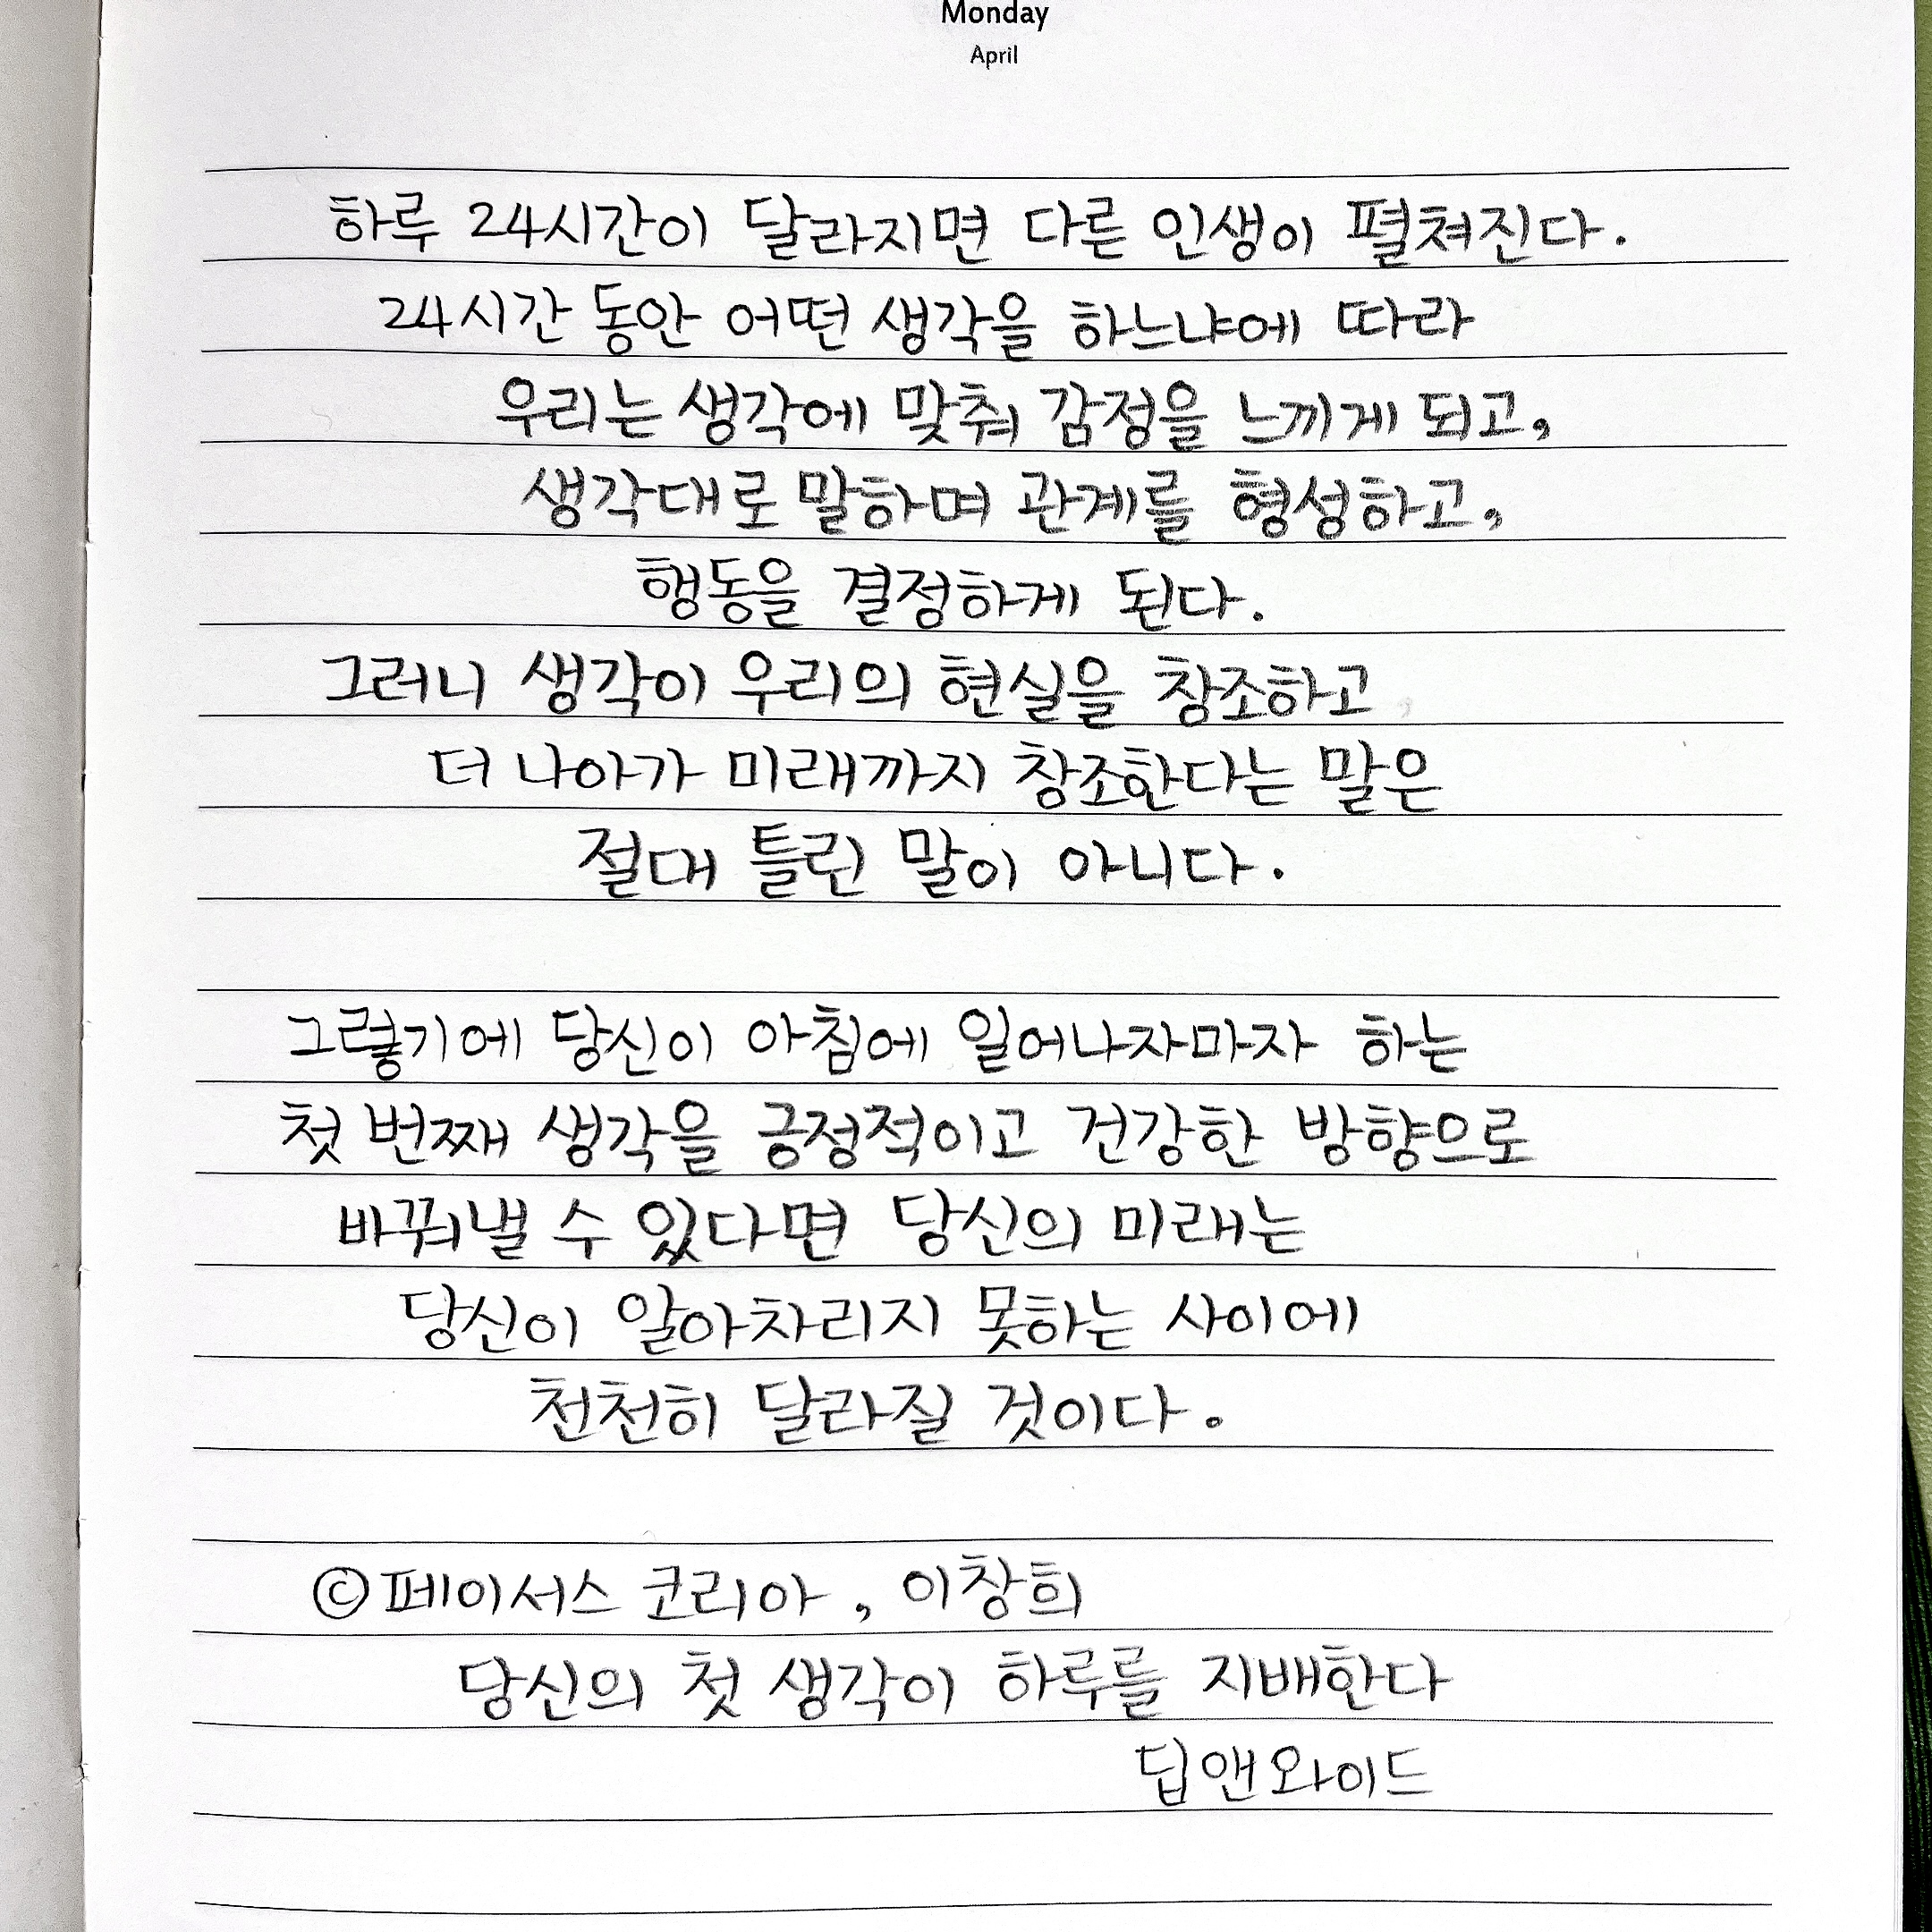 Monday
April
하루 24시간이 달라지면 다른 인생이 펼쳐진다.
24시간 동안 어떤 생각을 하느냐에 따라
우리는 생각에 맞춰 감정을 느끼게 되고,
생각대로 말하며 관계를 형성하고,
행동을 결정하게 된다.
그러니 생각이 우리의 현실을 창조하고
더 나아가 미래까지 창조한다는 말은
절대 틀린 말이 아니다.
그렇기에 당신이 아침에 일어나자마자 하는
첫 번째 생각을 긍정적이고 건강한 방향으로
바꿔낼 수 있다면 당신의 미래는
당신이 알아차리지 못하는 사이에
천천히 달라질 것이다.
©페이서스 코리아, 이창희
당신의 첫 생각이 하루를 지배한다
딥앤와이드